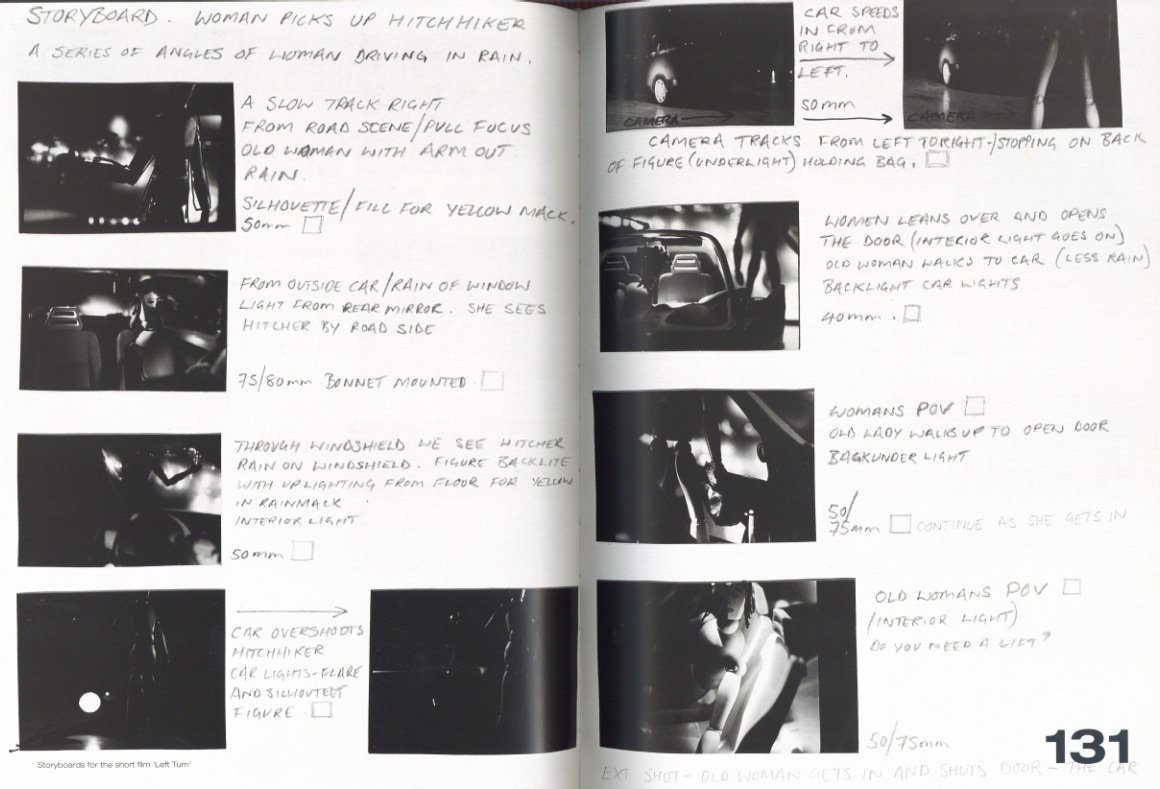 STORYBOARD. WOMAN PICKS UP HITCHHIKER
A SERIES OF ANGLES OF WOMAN DRIVING IN RAIN.
A SLOW TRACK RIGHT
FROM ROAD SCENE/PULL FOCUS
OLD WOMAN WITH ARM OUT
RAIN.
SILHOUETTE/FILL FOR YELLOW MACK.
50mm
FROM OUTSIDE CAR/RAIN OF WINDOW
LIGHT FROM REAR MIRROR. SHE SEES
HITCHER BY ROAD SIDE
75/80mm BONNET MOUNTED.
THROUGH WINDSHIELD WE SEE HITCHER
RAIN ON WINDSHIELD. FIGURE BACKLITE
WITH UPLIGHTING FROM FLOOR FOR YELLOW
IN RAINMACK
INTERIOR LIGHT
50mm
CAR OVERSHOOTS
HITCHHIKER
CAR LIGHTS-FLARE
AND SILHOUTEET
FIGURE
Storyboards for the short film 'Left Turn'
CAR SPEEDS
IN FROM
RIGHT TO
LEFT.
50mm
CAMERA
CAMERA
CAMERA TRACKS FROM LEFT TO RIGHT-/STOPPING ON BACK
OF FIGURE (UNDERLIGHT) HOLDING BAG.
WOMEN LEANS OVER AND OPENS
THE DOOR (INTERIOR LIGHT GOES ON)
OLD WOMAN WALKS TO CAR (LESS RAIN)
BACKLIGHT CAR LIGHTS
40mm.
WOMANS POV
OLD LADY WALKS UP TO OPEN DOOR
BAGKUNDER LIGHT
50/
75mm CONTINUE AS SHE GETS IN
OLD WOMANS POV
(INTERIOR LIGHT)
DO YOU NEED A LIFT?
50/75mm
131
EXT SHOT - OLD WOMAN GETS IN AND SHUTS DOOR - THE CAR